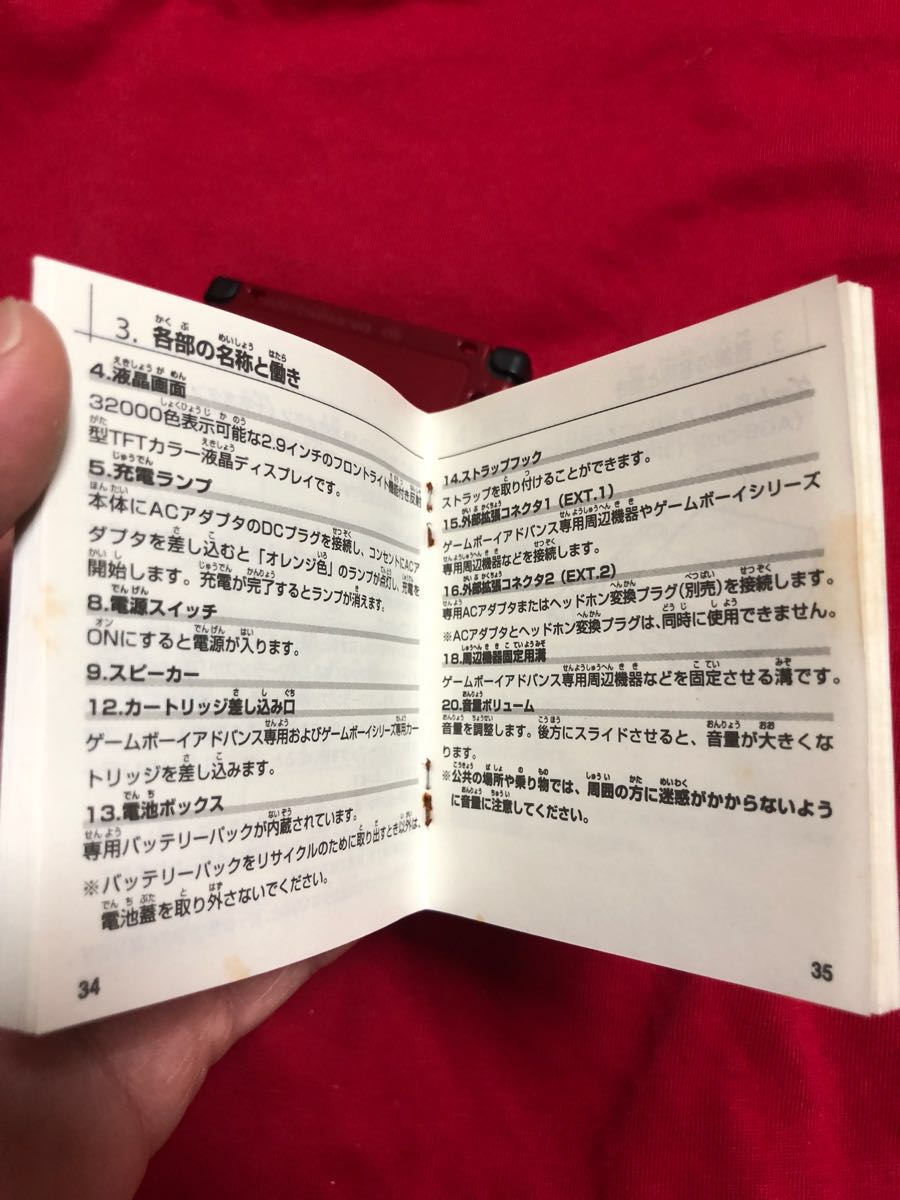 3. 各部の名称と働き
4.液晶画面
32000色表示可能な2.9インチのフロントライト機能付き反射
型TFTカラー液晶ディスプレイです。
5.充電ランプ
本体にACアダプタのDCプラグを接続し、コンセントにACア
ダプタを差し込むと「オレンジ色」のランプが点灯し、充電を
開始します。充電が完了するとランプが消えます。
8.電源スイッチ
ONにすると電源が入ります。
9.スピーカー
12.カートリッジ差し込み口
ゲームボーイアドバンス専用およびゲームボーイシリーズ専用カー
トリッジを差し込みます。
13.電池ボックス
専用バッテリーパックが内蔵されています。
※バッテリーパックをリサイクルのために取り出すとき以外は、
電池蓋を取り外さないでください。
34
14.ストラップフック
ストラップを取り付けることができます。
15.外部拡張コネクタ1(EXT.1)
ゲームボーイアドバンス専用周辺機器やゲームボーイシリーズ
専用周辺機器などを接続します。
16.外部拡張コネクタ2(EXT.2)
専用ACアダプタまたはヘッドホン変換プラグ(別売)を接続します。
※ACアダプタとヘッドホン変換プラグは、同時に使用できません。
18.周辺機器固定用溝
ゲームボーイアドバンス専用周辺機器などを固定させる溝です。
20.音量ボリューム
音量を調整します。後方にスライドさせると、音量が大きくな
ります。
※公共の場所や乗り物では、周囲の方に迷惑がかからないよう
に音量に注意してください。
35